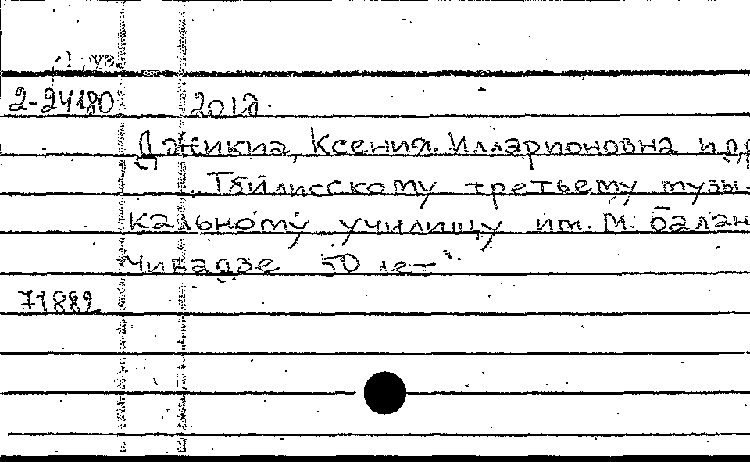 2-24180 2012.
Джикиа, Ксения Илларионовна и др
Тбилисскому третьему музы-
кальному училищу им. М. Балан
чивадзе 50 лет
71882